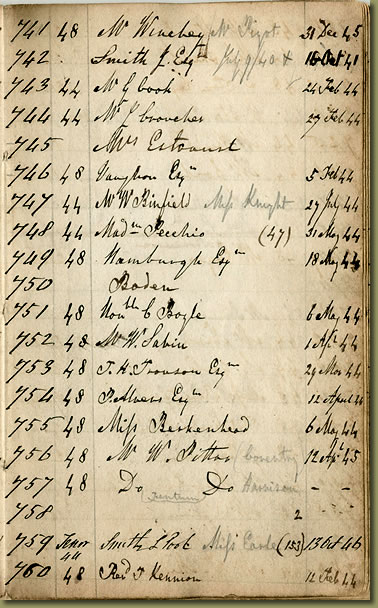 741 48 Mr Winchey Mr Pigot 31 Dec 45
742 Smith J. Esqre July 9/40 + 16 Oct 41
743 44 Mr G Cook 24 Feb 44
744 44 Mr J Croucher 27 Feb 44
745 Mrs Estcourt
746 48 Vaughan Esqre 5 Feb 44
747 44 Mr W Binfield Miss Knight 27 July 44
748 44 Madm Secchio (47) 31 May 44
749 48 Hamburgh Esqre 18 May 44
750 Boden
751 48 Honble C Boyle 6 May 44
752 48 Mr W. Sabin 1 Apl 44
753 48 T. H. Trouson Esqre 29 Mar 44
754 48 Esqre 12 April
755 48 Miss Berkenhead 6 May 44
756 48 Mr W. Pittar Coventry 12 Apl 45
757 48 Do Do Harrison - -
758 2
759 Tenor 44 Smith L Pool Miss (153) 13 Oct 46
760 48 Revd T Kennion 12 Feb 44